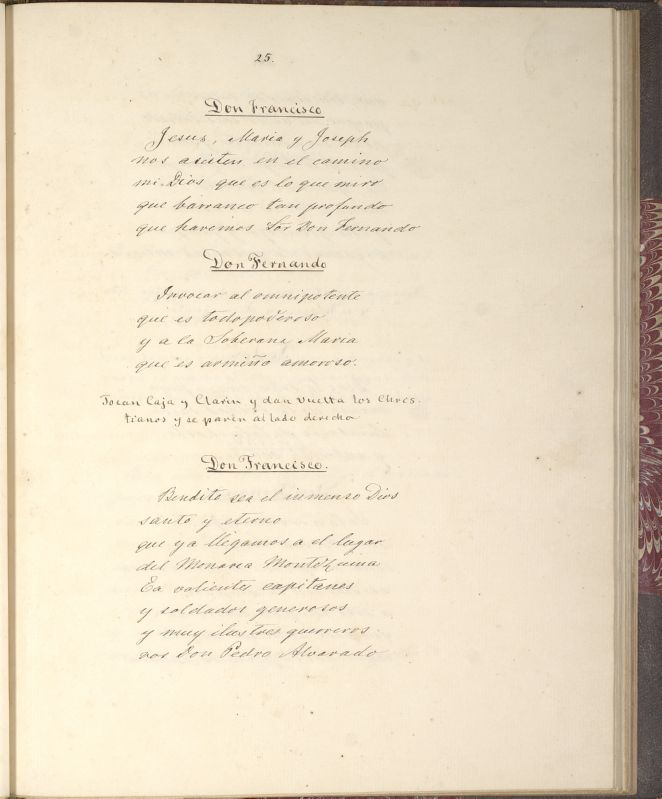 25.
Don Francisco
Jesus, Maria y Joseph
nos asisten en el camino
mi Dios que es lo que miro
que barranco tan profundo
que haremos Sor Don Fernando
Don Fernando
Invocar al omnipotente
que es todo poderoso
y a la Soberana Maria
que es armiño amoroso.
Tocan Caja y Clarin y dan vuelta los Chris-
tianos y se paren al lado derecho
Don Francisco.
Bendito sea el inmenso Dios
santo y eterno
que ya llegamos a el lugar
del Monarca Montezuma
Ea valientes capitanes
y soldados generosos
y muy ilustres guerreros
vos Don Pedro Alvarado